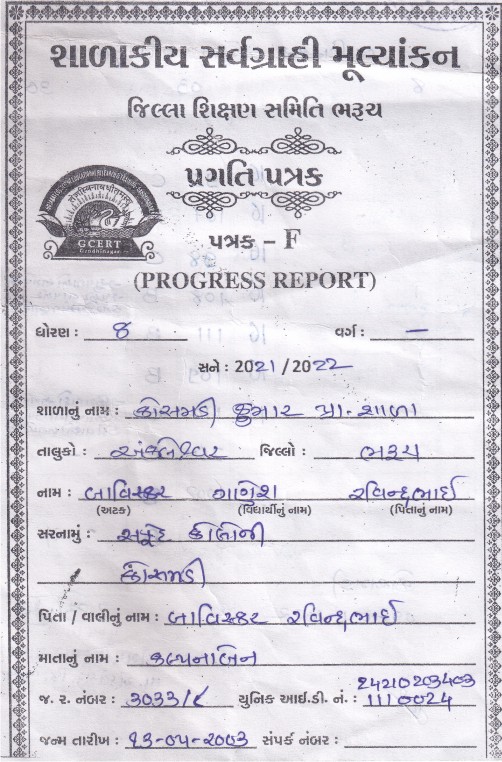 શાળાકીય સર્વગ્રાહી મૂલ્યાંકન
જિલ્લા શિક્ષણ સમિતિ ભરૂચ
પ્રગતિ પત્રક
GCERT
Gandhinagar
પત્રક - F
(PROGRESS REPORT)
ધોરણ : 8 વર્ગ : —
સને : 2021/2022
શાળાનું નામ : કોસમડી કુમાર પ્રા. શાળા
તાલુકો : અંકલેશ્વર જિલ્લો : ભરૂચ
નામ : બાવિસ્કર ગણેશ રવિન્દ્રભાઈ
(અટક) (વિદ્યાર્થીનું નામ) (પિતાનું નામ)
સરનામું : કોલોની
કોસમડી
પિતા / વાલીનું નામ : બાવિસ્કર રવિન્દ્રભાઈ
માતાનું નામ : કલ્પનાબેન
24210203403
જ. ર. નંબર : યુનિક આઈ.ડી. નં. : 1110024
જન્મ તારીખ : 13-05-2003 સંપર્ક નંબર :